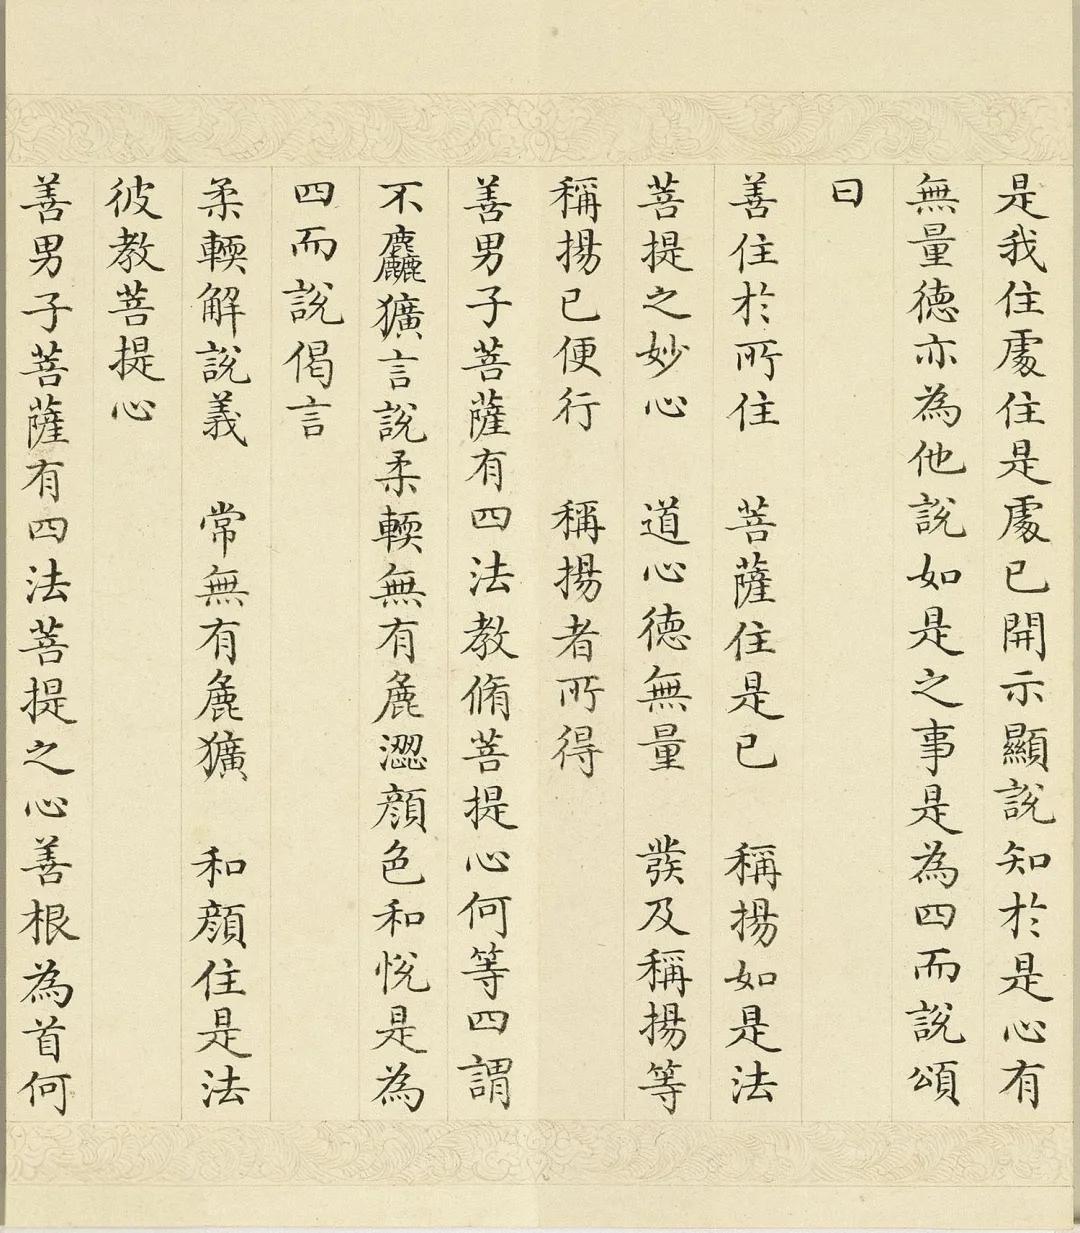 是我住處住是處已開示顯說知於是心有
無量德亦為他說如是之事是為四而說頌
曰
善住於所住　菩薩住是已　稱揚如是法
菩提之妙心　道心德無量　發及稱揚等
稱揚已便行　稱揚者所得
善男子菩薩有四法教脩菩提心何等四謂
不麤獷言說柔輭無有麁澀顏色和悅是為
四而說偈言
柔輭解說義　常無有麁獷　和顏住是法
彼教菩提心
善男子菩薩有四法菩提之心善根為首何